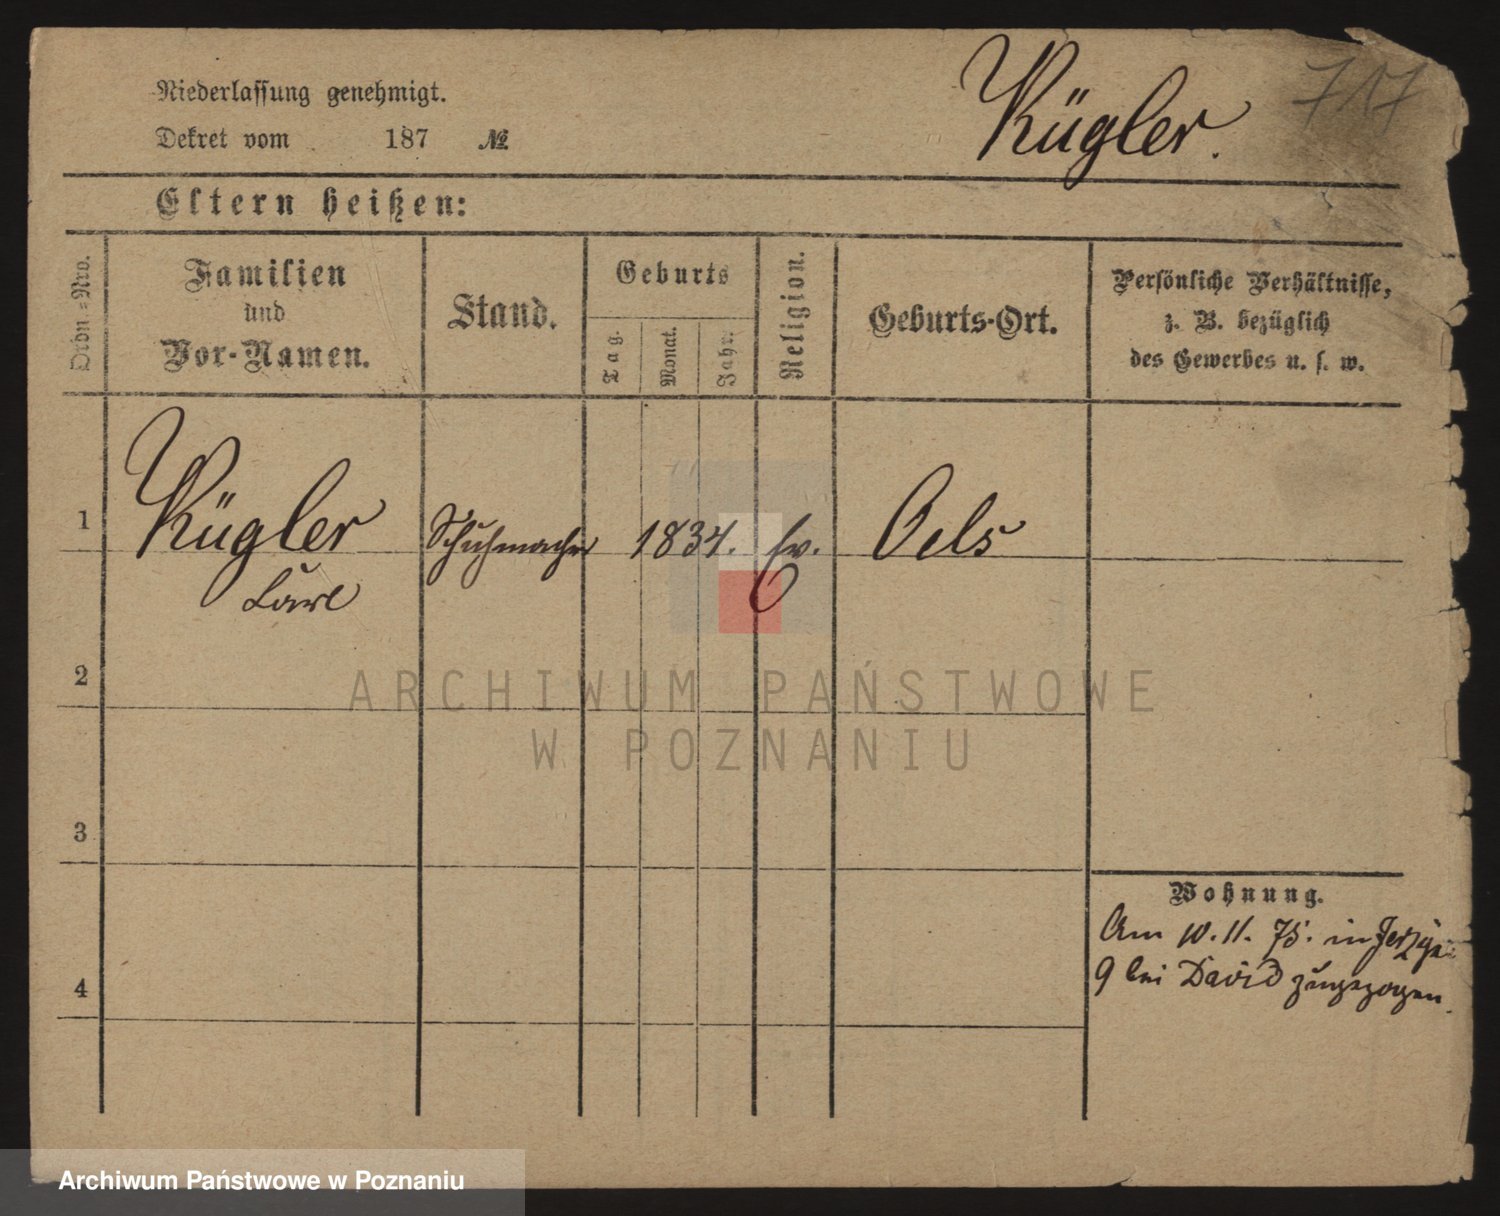 Niederlassung genehmigt.
Dekret vom 187 №
Kügler.
717
Eltern heißen:
Ordn.=Nro.
Familien
und
Vor-Namen.
Stand.
Geburts
Tag.
Monat.
Jahr.
Religion.
Geburts-Ort.
Persönliche Verhältnisse,
z. B. bezüglich
des Gewerbes u. s. w.
1
Kügler
Carl
Schuhmacher
1834.
Ev.
Oels
2
3
4
Wohnung.
Am 10.11.75. in
9 bei David zugezogen.
ARCHIWUM PAŃSTWOWE
W POZNANIU
Archiwum Państwowe w Poznaniu